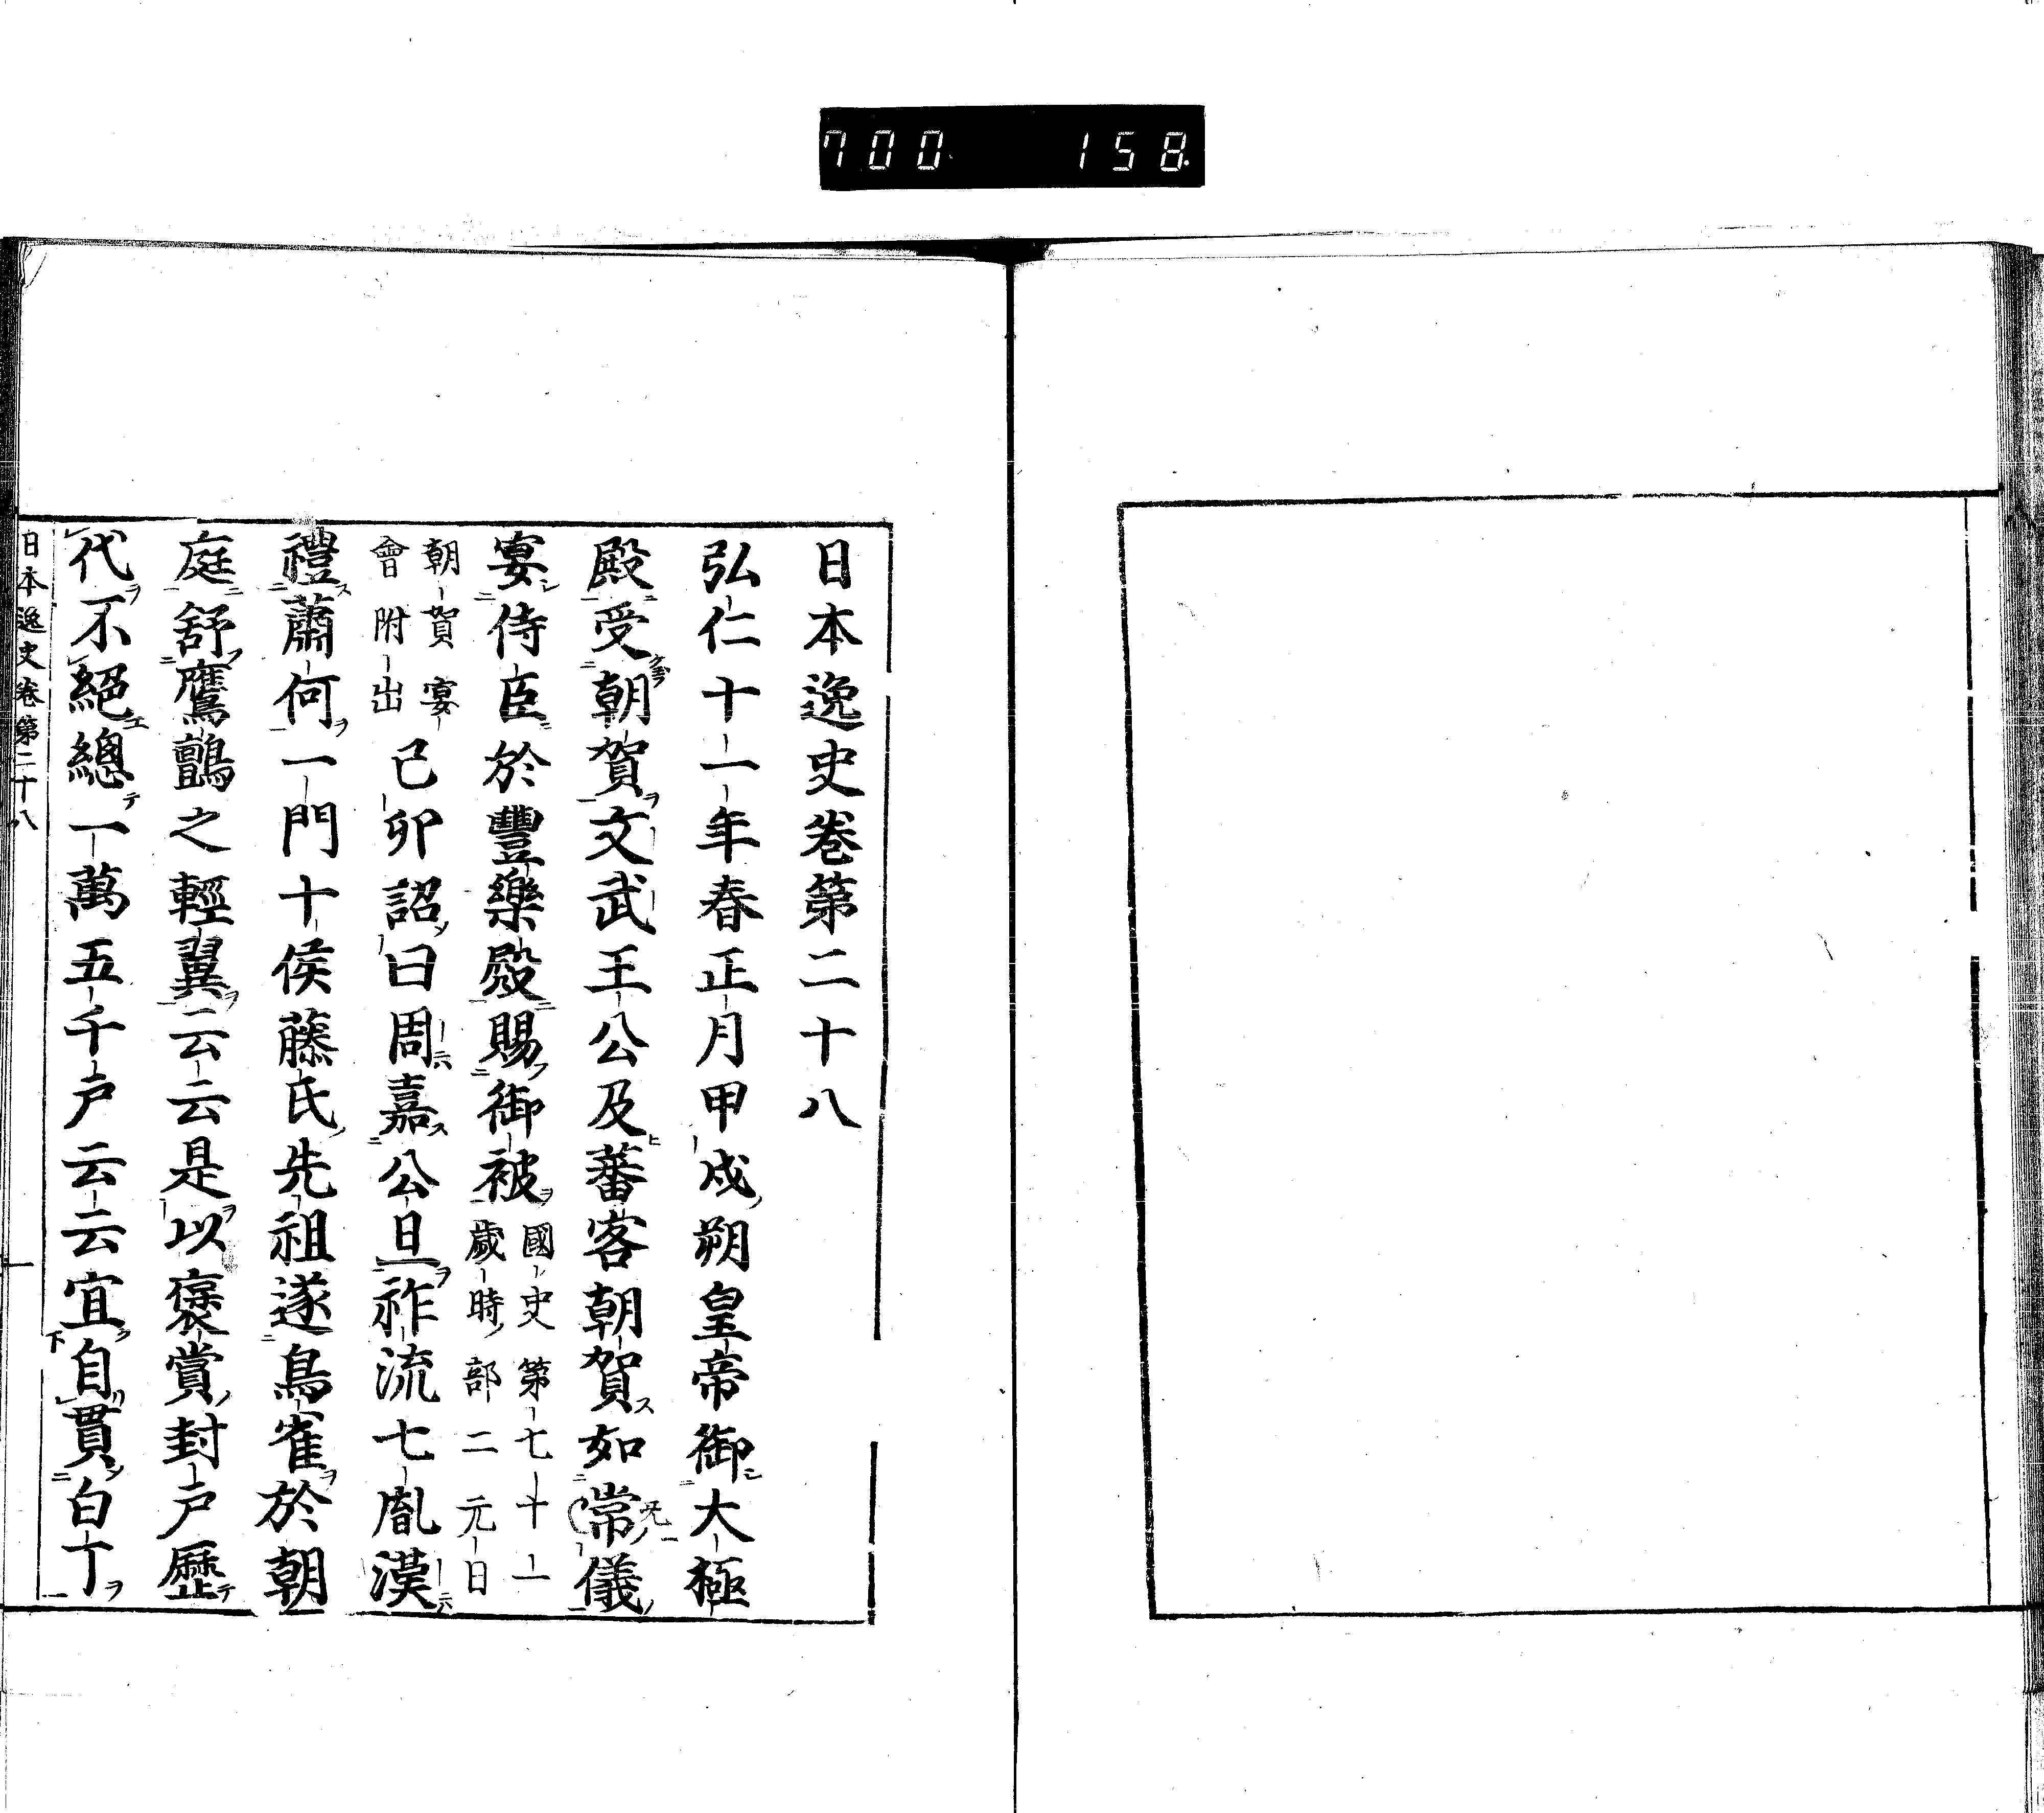 700 158
日本逸史卷第二十八
弘仁十一年春正月甲戌朔皇帝御大極
殿受朝賀文武王公及蕃客朝賀如常儀
宴侍臣於豐樂殿賜御被國史第七十一
歲時部二元日
朝賀宴
會附出
己卯詔曰周嘉公旦祚流七胤漢
禮蕭何一門十侯藤氏先祖遂鳥雀於朝
庭舒鷹鸇之輕翼云云是以褒賞封戶歷
代不絕總一萬五千戶云云宜自貫白丁
日本逸史卷第二十八
一